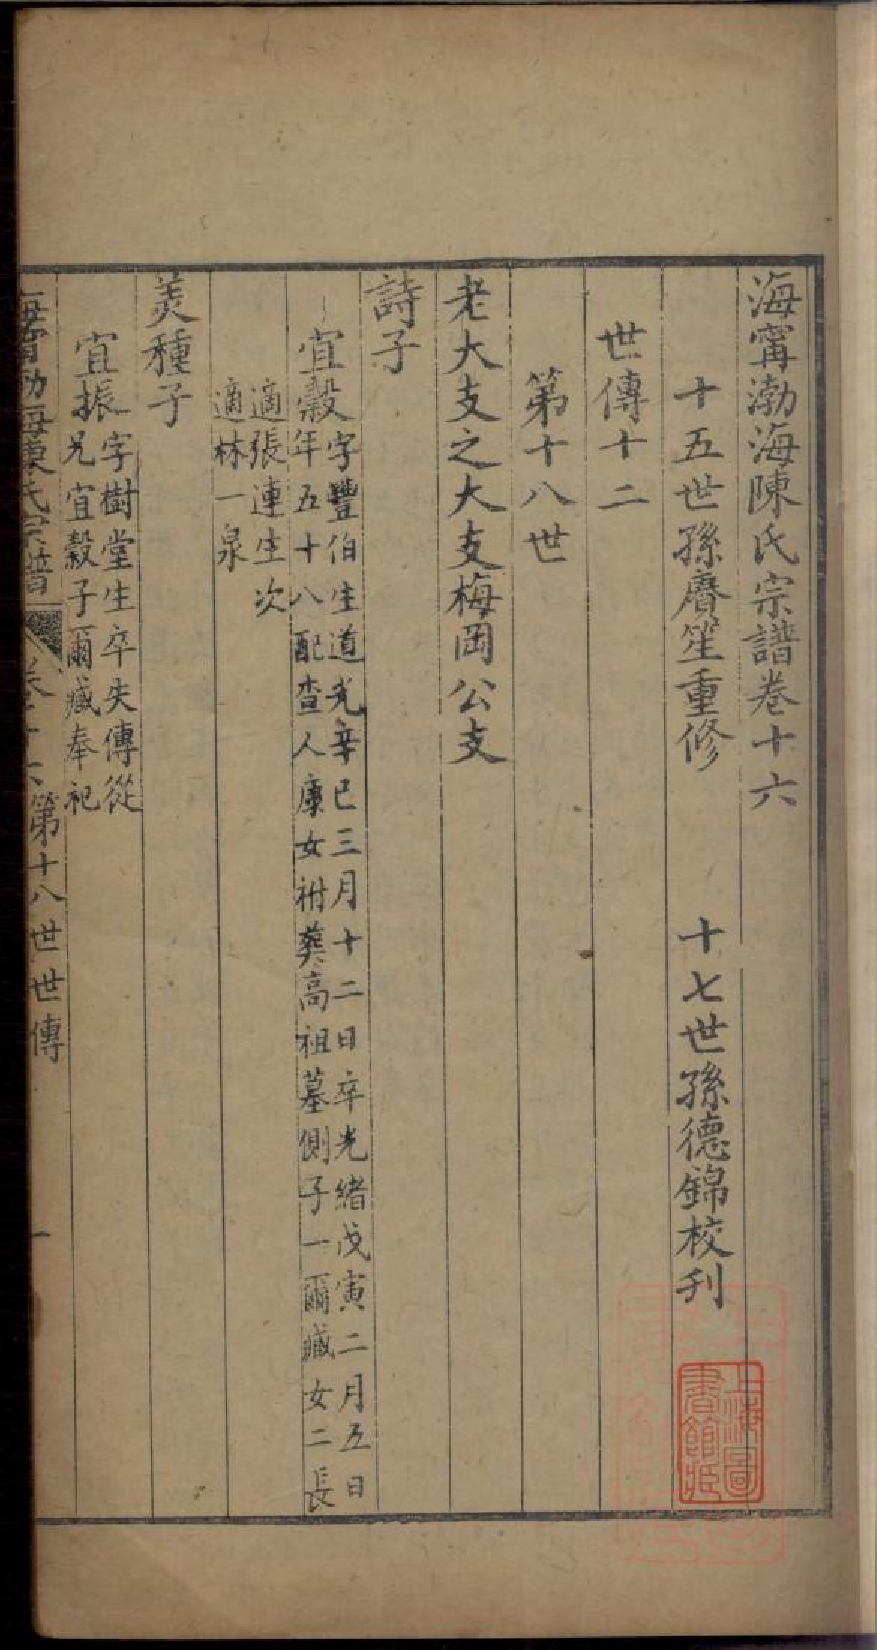 海甯渤海陳氏宗譜卷十六
十五世孫賡笙重修　十七世孫德錦校刋
世傳十二
第十八世
老大支之大支梅岡公支
詩子
宜穀
字豐伯生道光辛巳三月十二日卒光緒戊寅二月五日
年五十八配查人康女祔葬高祖墓側子一爾臧女二長
適張連生次
適林一泉
羙種子
宜振
字樹堂生卒失傳從
兄宜穀子爾臧奉祀
海甯渤海陳氏宗譜　卷十六第十八世世傳　一
上海圖書館藏